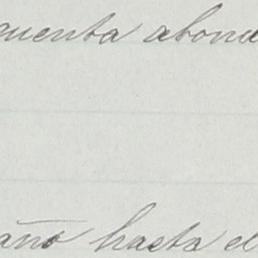 quenta abona
año hasta el